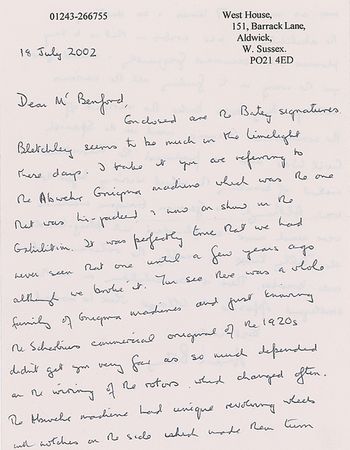 01243-266755
West House,
151, Barrack Lane,
Aldwick,
W. Sussex.
PO21 4ED
18 July 2002
Dear Mr Benford,
Enclosed are the Batey signatures.
Bletchley seems to be much in the limelight
these days. I take it you are referring to
the Abwehr Enigma machine which was the one
that was hi-jacked & now on show in the
Exhibition. It was perfectly true that we had
never seen that one until a few years ago
although we broke it. You see there was a whole
family of Enigma machines and just knowing
the Scherbius commercial original of the 1920s
didn't get you very far as so much depended
on the wiring of the rotors which changed often.
The Abwehr machine had unique revolving wheels
with notches on the side which made them turn